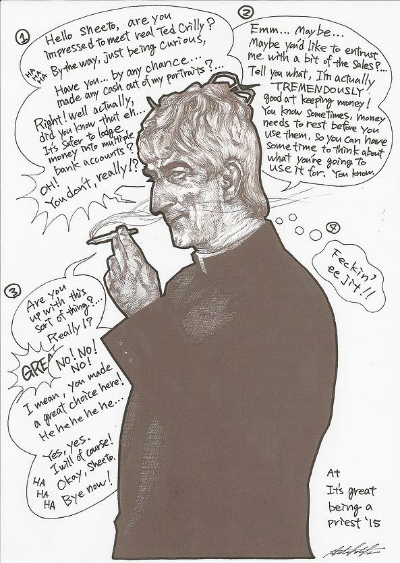 ①
Hello Sheeto, are you
impressed to meet real Ted Crilly?
HA HA
By the way, just being curious,
Have you... by any chance...
made any cash out of my portraits?...
Right! Well actually,
did you know that eh...
It's safer to lodge
money into multiple
bank accounts?
OH!
You don't, really!?
②
Emm... Maybe...
Maybe you'd like to entrust
me with a bit of the sales?...
Tell you what, I'm actually
TREMENDOUSLY
good at keeping money!
You know sometimes, money
needs to rest before you
use them, so you can have
some time to think about
what you're going to
use it for. You know,
③
Are you
up with this
sort of thing?...
Really!?
GREA
No! No!
No!
I mean, you made
a great choice here!
He he he he...
Yes, yes.
I will of course!
Okay, Sheeto.
HA
HA
HA
Bye now!
④
Feckin'
eejit!!
At
It's great
being a
priest '15